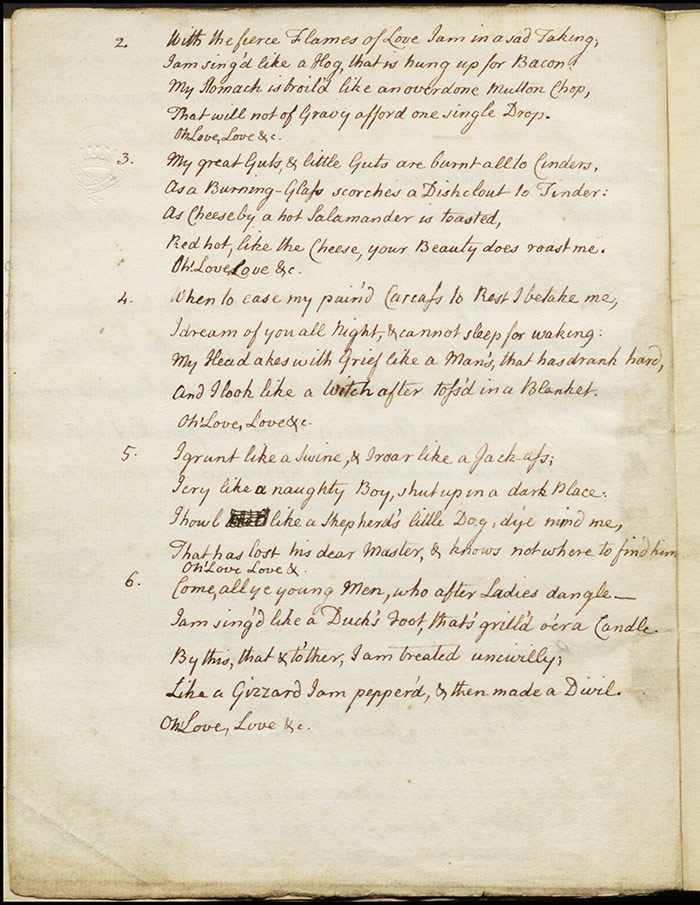 2. With the fierce Flames of Love I am in a sad Taking,
I am sing'd like a Hog, that is hung up for Bacon,
My Stomach is broil'd like an overdone Mutton Chop,
That will not of Gravy afford one single Drop.
Oh Love, Love &c.
3. My great Guts, & little Guts are burnt all to Cinders,
As a Burning-Glass scorches a Dishclout to Tinder:
As Cheese by a hot Salamander is toasted,
Red hot, like the Cheese, your Beauty does roast me.
Oh! Love, Love &c.
4. When to ease my pain'd Carcass to Rest I betake me,
I dream of you all Night, & cannot sleep for waking:
My Head akes with Grief like a Man's, that has drank hard,
And I look like a Witch after toss'd in a Blanket.
Oh! Love, Love &c.
5. I grunt like a Swine, & I roar like a Jack-ass;
I cry like a naughty Boy, shut up in a dark Place:
I howl like a Shepherd's little Dog, d'ye mind me,
That has lost his dear Master, & knows not where to find him
Oh! Love Love &
6. Come, all ye young Men, who after Ladies dangle—
I am sing'd like a Duck's Foot, that's grill'd o'er a Candle.
By this, that & t'other, I am treated uncivilly;
Like a Gizzard I am pepper'd, & then made a Divil.
Oh! Love, Love &c.